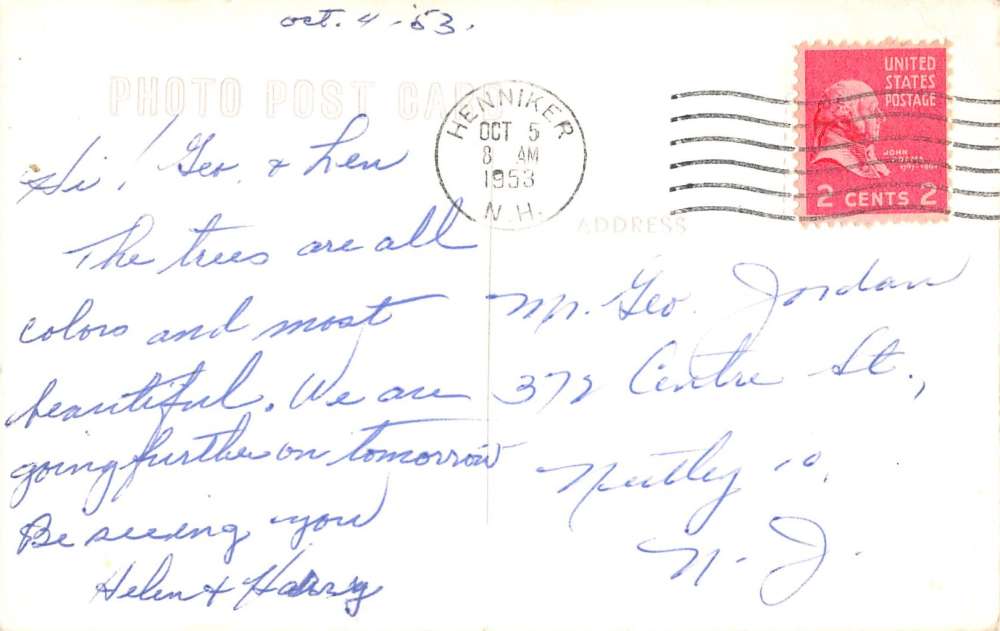 oct. 4 - 53.
PHOTO POST CARD
HENNIKER
OCT 5
8 AM
1953
N.H.
UNITED
STATES
POSTAGE
JOHN
ADAMS
2 CENTS 2
ADDRESS
Hi! Geo. & Len
The trees are all
colors and most
beautiful. We are
going further on tomorrow
Be seeing you
Helen & Harry
Mr. Geo. Jordan
372 Centre St.,
Nutley 10,
N. J.